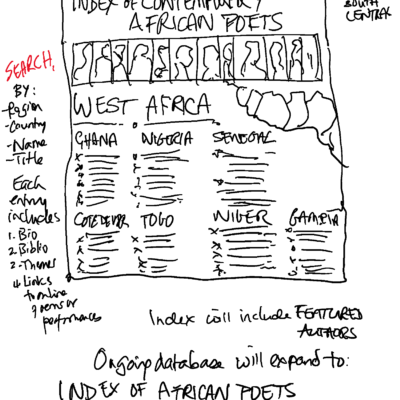 INDEX OF CONTEMPORARY
AFRICAN POETS
SOUTH
CENTRAL
SEARCH
BY:
-Region
-Country
-Name
-Title
Each
entry
includes
1. Bio
2. Biblio
3. Themes
4. Links
to online
performances
WEST AFRICA
GHANA NIGERIA SENEGAL
COTE D'IVOIRE TOGO NIGER GAMBIA
Index will include FEATURED
AUTHORS
Ongoing database will expand to:
INDEX OF AFRICAN POETS